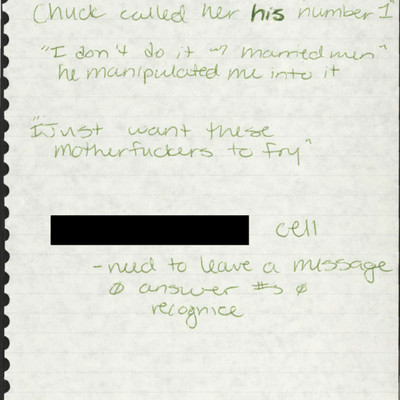 Chuck called her his number 1"
"I don't do it w/ married men"
he manipulated me into it
"I Just want these
motherfuckers to fry"
cell
- need to leave a message
∅ answer #s ∅
recognice